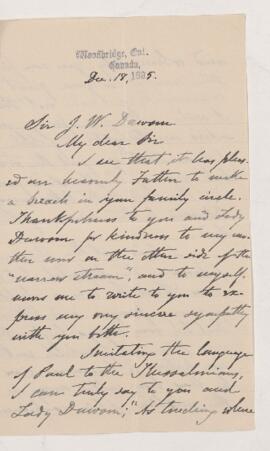 Woodbridge, Ont.
Canada,
Dec. 18, 1895.
Sir J. W. Dawson
My dear Sir
I see that it has pleas-
ed our heavenly Father to make
a breach in your family circle.
Thankfulness to you and Lady
Dawson for kindness to my
now on the other side of the
"narrow stream", and to myself,
moves me to write to you to ex-
press my very sincere sympathy
with you both.
Imitating the language
of Paul to the Thessalonians,
I can truly say to you and
Lady Dawson; "As touching